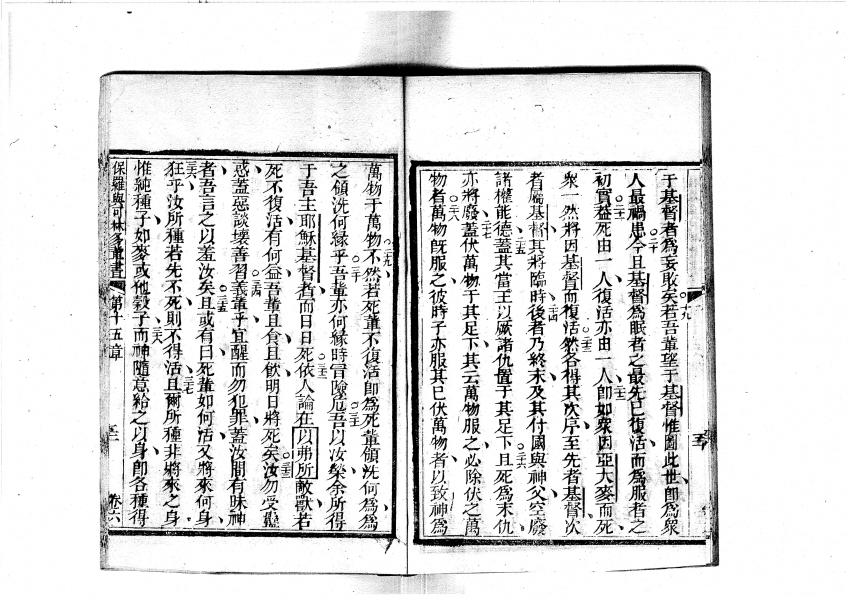 于基督者為妄敗矣若吾輩望于基督惟圖此世卽為衆
人最禍患今且基督為眠者之最先已復活而為服者之
初實蓋死由一人復活亦由一人卽如衆因亞大麥而死
衆一然將因基督而復活然各得其次序至先者基督次
者屬基督其將臨時後者乃終末及其付國與神父空廢
諸權能德蓋其當王以厥諸仇置于其足下且死為末仇
亦將廢蓋伏萬物于其足下其云萬物服之必除伏之萬
物者萬物旣服之彼時子亦服其已伏萬物者以致神為
萬物于萬物不然若死輩不復活卽為死輩領洗何為為
之領洗何緣乎吾輩亦何緣時冒險厄吾以汝榮余所得
于吾主耶穌基督者而日日死依人論在以弗所敵獸若
死不復活有何益吾輩且食且飲明日將死矣汝勿受
惑蓋惡談壞善習義輩乎宜醒而勿犯罪蓋汝間有昧神
者吾言之以羞汝矣且或有曰死輩如何活又將來何身
狂乎汝所種若先不死則不得活且爾所種非將來之身
惟純種子如麥或他穀子而神隨意給之以身卽各種得
保羅與可林多輩書 第十五章 卷六